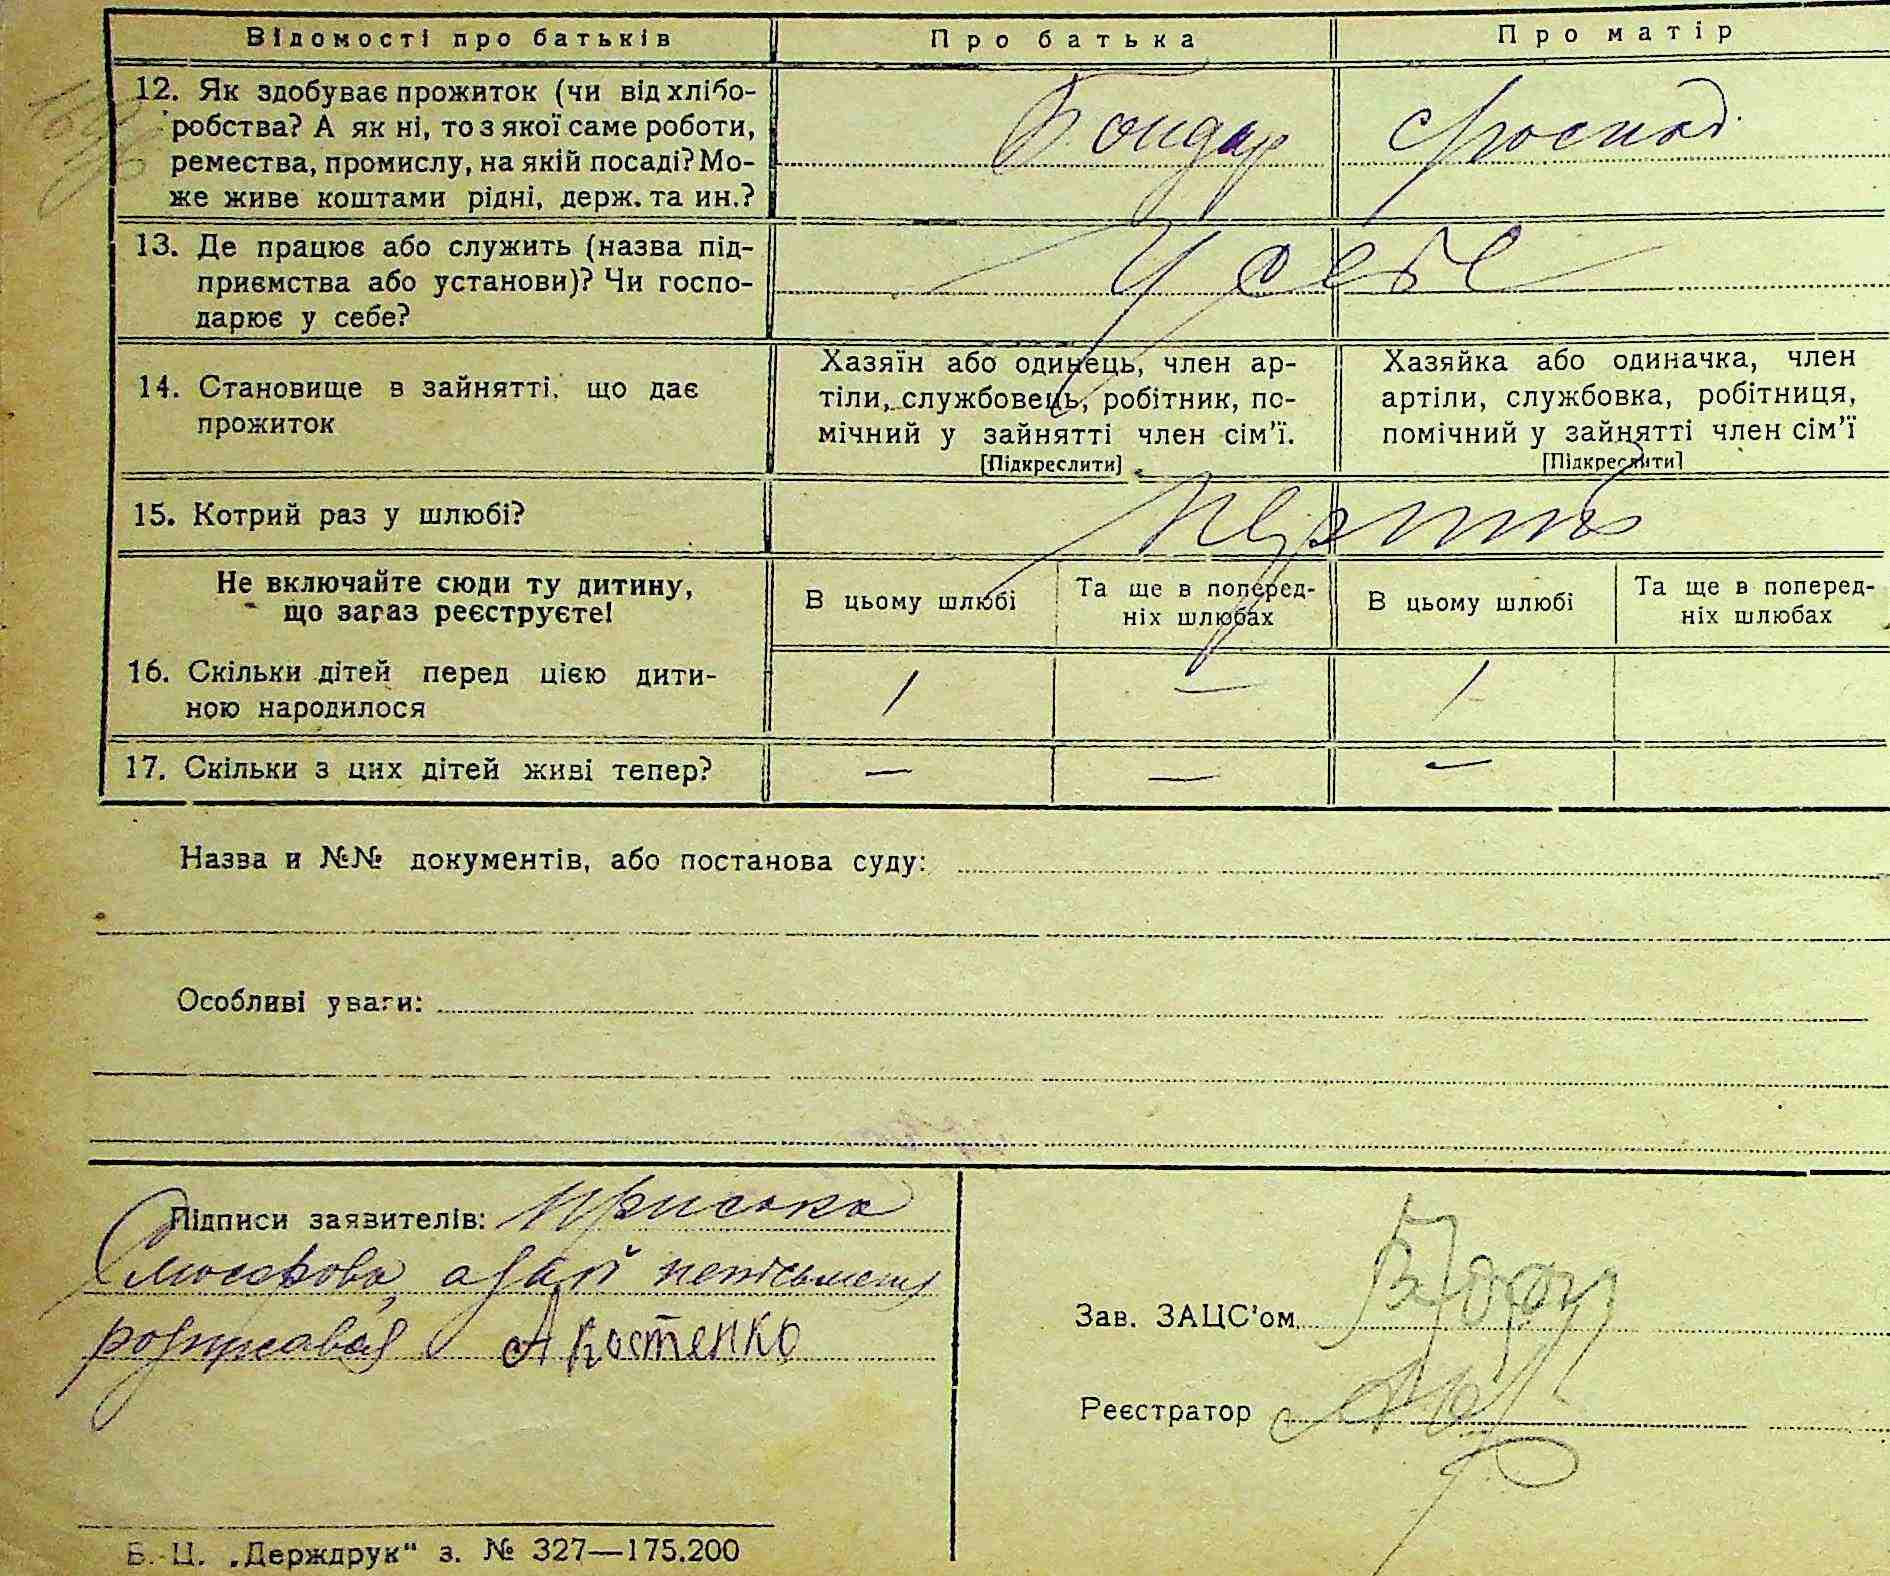 Відомості про батьків
Про батька
Про матір
12. Як здобуває прожиток (чи від хлібо-
робства? А як ні, то з якої саме роботи,
ремества, промислу, на якій посаді? Мо-
же живе коштами рідні, держ. та ин.?
Бондар
господ.
13. Де працює або служить (назва під-
приємства або установи)? Чи госпо-
дарює у себе?
У себе
14. Становище в зайнятті, що дає
прожиток
Хазяїн або одинець, член ар-
тіли, службовець, робітник, по-
мічний у зайнятті член сім'ї.
[Підкреслити]
Хазяйка або одиначка, член
артіли, службовка, робітниця,
помічний у зайнятті член сім'ї
[Підкреслити]
15. Котрий раз у шлюбі?
Не включайте сюди ту дитину,
що зараз реєструєте!
В цьому шлюбі
Та ще в поперед-
ніх шлюбах
В цьому шлюбі
Та ще в поперед-
ніх шлюбах
16. Скільки дітей перед цією дити-
ною народилося
1 — 1
17. Скільки з цих дітей живі тепер?
— — —
Назва и №№ документів, або постанова суду:
Особливі уваги:
Підписи заявителів: Приська
а за її неписьмен
А Костенко
Зав. ЗАЦС'ом
Реєстратор
Б.-Ц. „Держдрук“ з. № 327—175.200